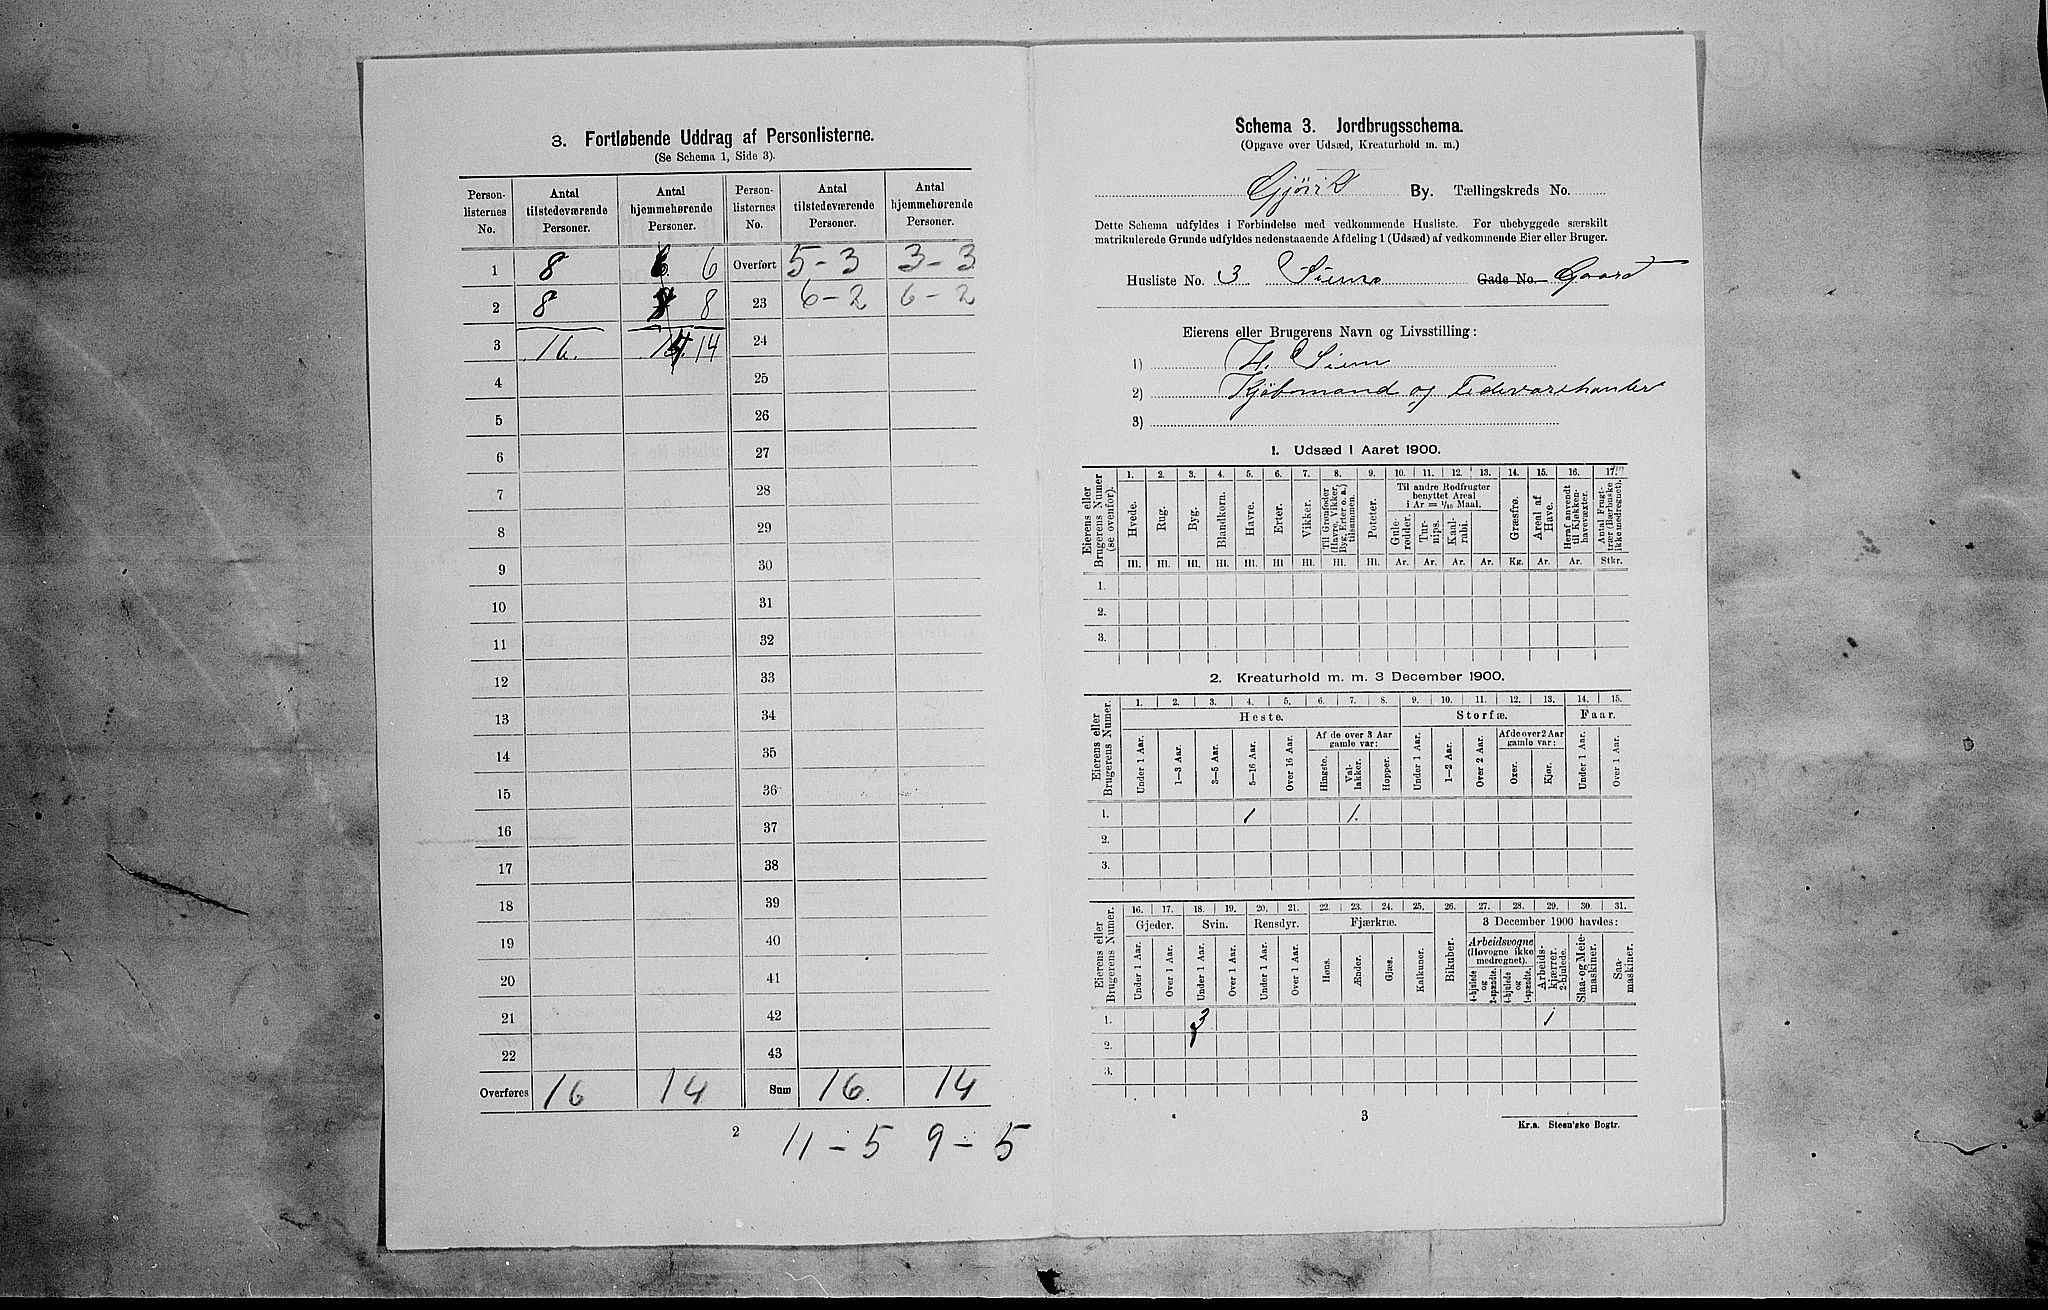 3. Fortløbende Uddrag af Personlisterne.
(Se Schema 1, Side 3).
Person-listernes No. Antal tilstedeværende Personer. Antal hjemmehørende Personer. Person-listernes No. Antal tilstedeværende Personer. Antal hjemmehørende Personer.
1 8 6 6 Overført 5-3 3-3
2 8 8 8 23 6-2 6-2
3 16. 14 14 24
4 25
5 26
6 27
7 28
8 29
9 30
10 31
11 32
12 33
13 34
14 35
15 36
16 37
17 38
18 39
19 40
20 41
21 42
22 43
Overføres 16 14 Sum 16. 14
2 11-5 9-5
Schema 3. Jordbrugsschema.
(Opgave over Udsæd, Kreaturhold m. m.)
Gjøvik By. Tællingskreds No.
Dette Schema udfyldes i Forbindelse med vedkommende Husliste. For ubebyggede særskilt
matrikulerede Grunde udfyldes nedenstaaende Afdeling 1 (Udsæd) af vedkommende Eier eller Bruger.
Husliste No. 3 Siems Gade No. Gaard
Eierens eller Brugerens Navn og Livsstilling:
1) H. Siem
2) Kjøbmand og Fedevarehanler
3)
1. Udsæd i Aaret 1900.
Eierens eller Brugerens Numer (se ovenfor).
1. 2. 3. 4. 5. 6. 7. 8. 9. 10. 11. 12. 13. 14. 15. 16. 17.
Til andre Rodfrugter benyttet Areal i Ar = 1/10 Maal.
Hvede. Rug. Byg. Blandkorn. Havre. Erter. Vikker. Til Grønfoder (Havre, Vikker, Byg, Erter o. a.) tilsammen. Poteter. Gule-rødder. Tur-nips. Kaal-rabi. Græsfrø. Areal af Have. Heraf anvendt til Kjøkken-havevæxter. Antal Frugt-trær (Bærbuske ikke medregnet).
Hl. Hl. Hl. Hl. Hl. Hl Hl. Hl. Hl. Ar. Ar. Ar. Ar. Kg. Ar. Ar. Stkr.
1.
2.
3.
2. Kreaturhold m. m. 3 December 1900.
Eierens eller Brugerens Numer.
1. 2. 3. 4. 5. 6. 7. 8. 9. 10. 11. 12. 13. 14. 15.
Heste. Storfæ. Faar.
Af de over 3 Aar gamle var: Af de over 2 Aar gamle var:
Under 1 Aar. 1—3 Aar. 3—5 Aar. 5—16 Aar. Over 16 Aar. Hingste. Val-lakker. Hopper. Under 1 Aar. 1—2 Aar. Over 2 Aar. Oxer. Kjør. Under 1 Aar. Over 1 Aar.
1. 1 1.
2.
3.
Eierens eller Brugerens Numer.
16. 17. 18. 19. 20. 21. 22. 23. 24. 25. 26. 27. 28. 29. 30. 31.
Gjeder. Svin. Rensdyr. Fjærkræ. 3 December 1900 havdes:
Under 1 Aar. Over 1 Aar. Under 1 Aar. Over 1 Aar. Under 1 Aar. Over 1 Aar. Høns. Ænder. Gjæs. Kalkuner. Bikuber. Arbeidsvogne (Høvogne ikke medregnet). 4-hjulede og 2-spændte. 4-hjulede og 1-spændte. Arbeids-kjærrer, 2-hjulede. Slaa- og Meie-maskiner. Saa-maskiner.
1. 3 1
2.
3.
3
Kr.a. Steen'ske Bogtr.